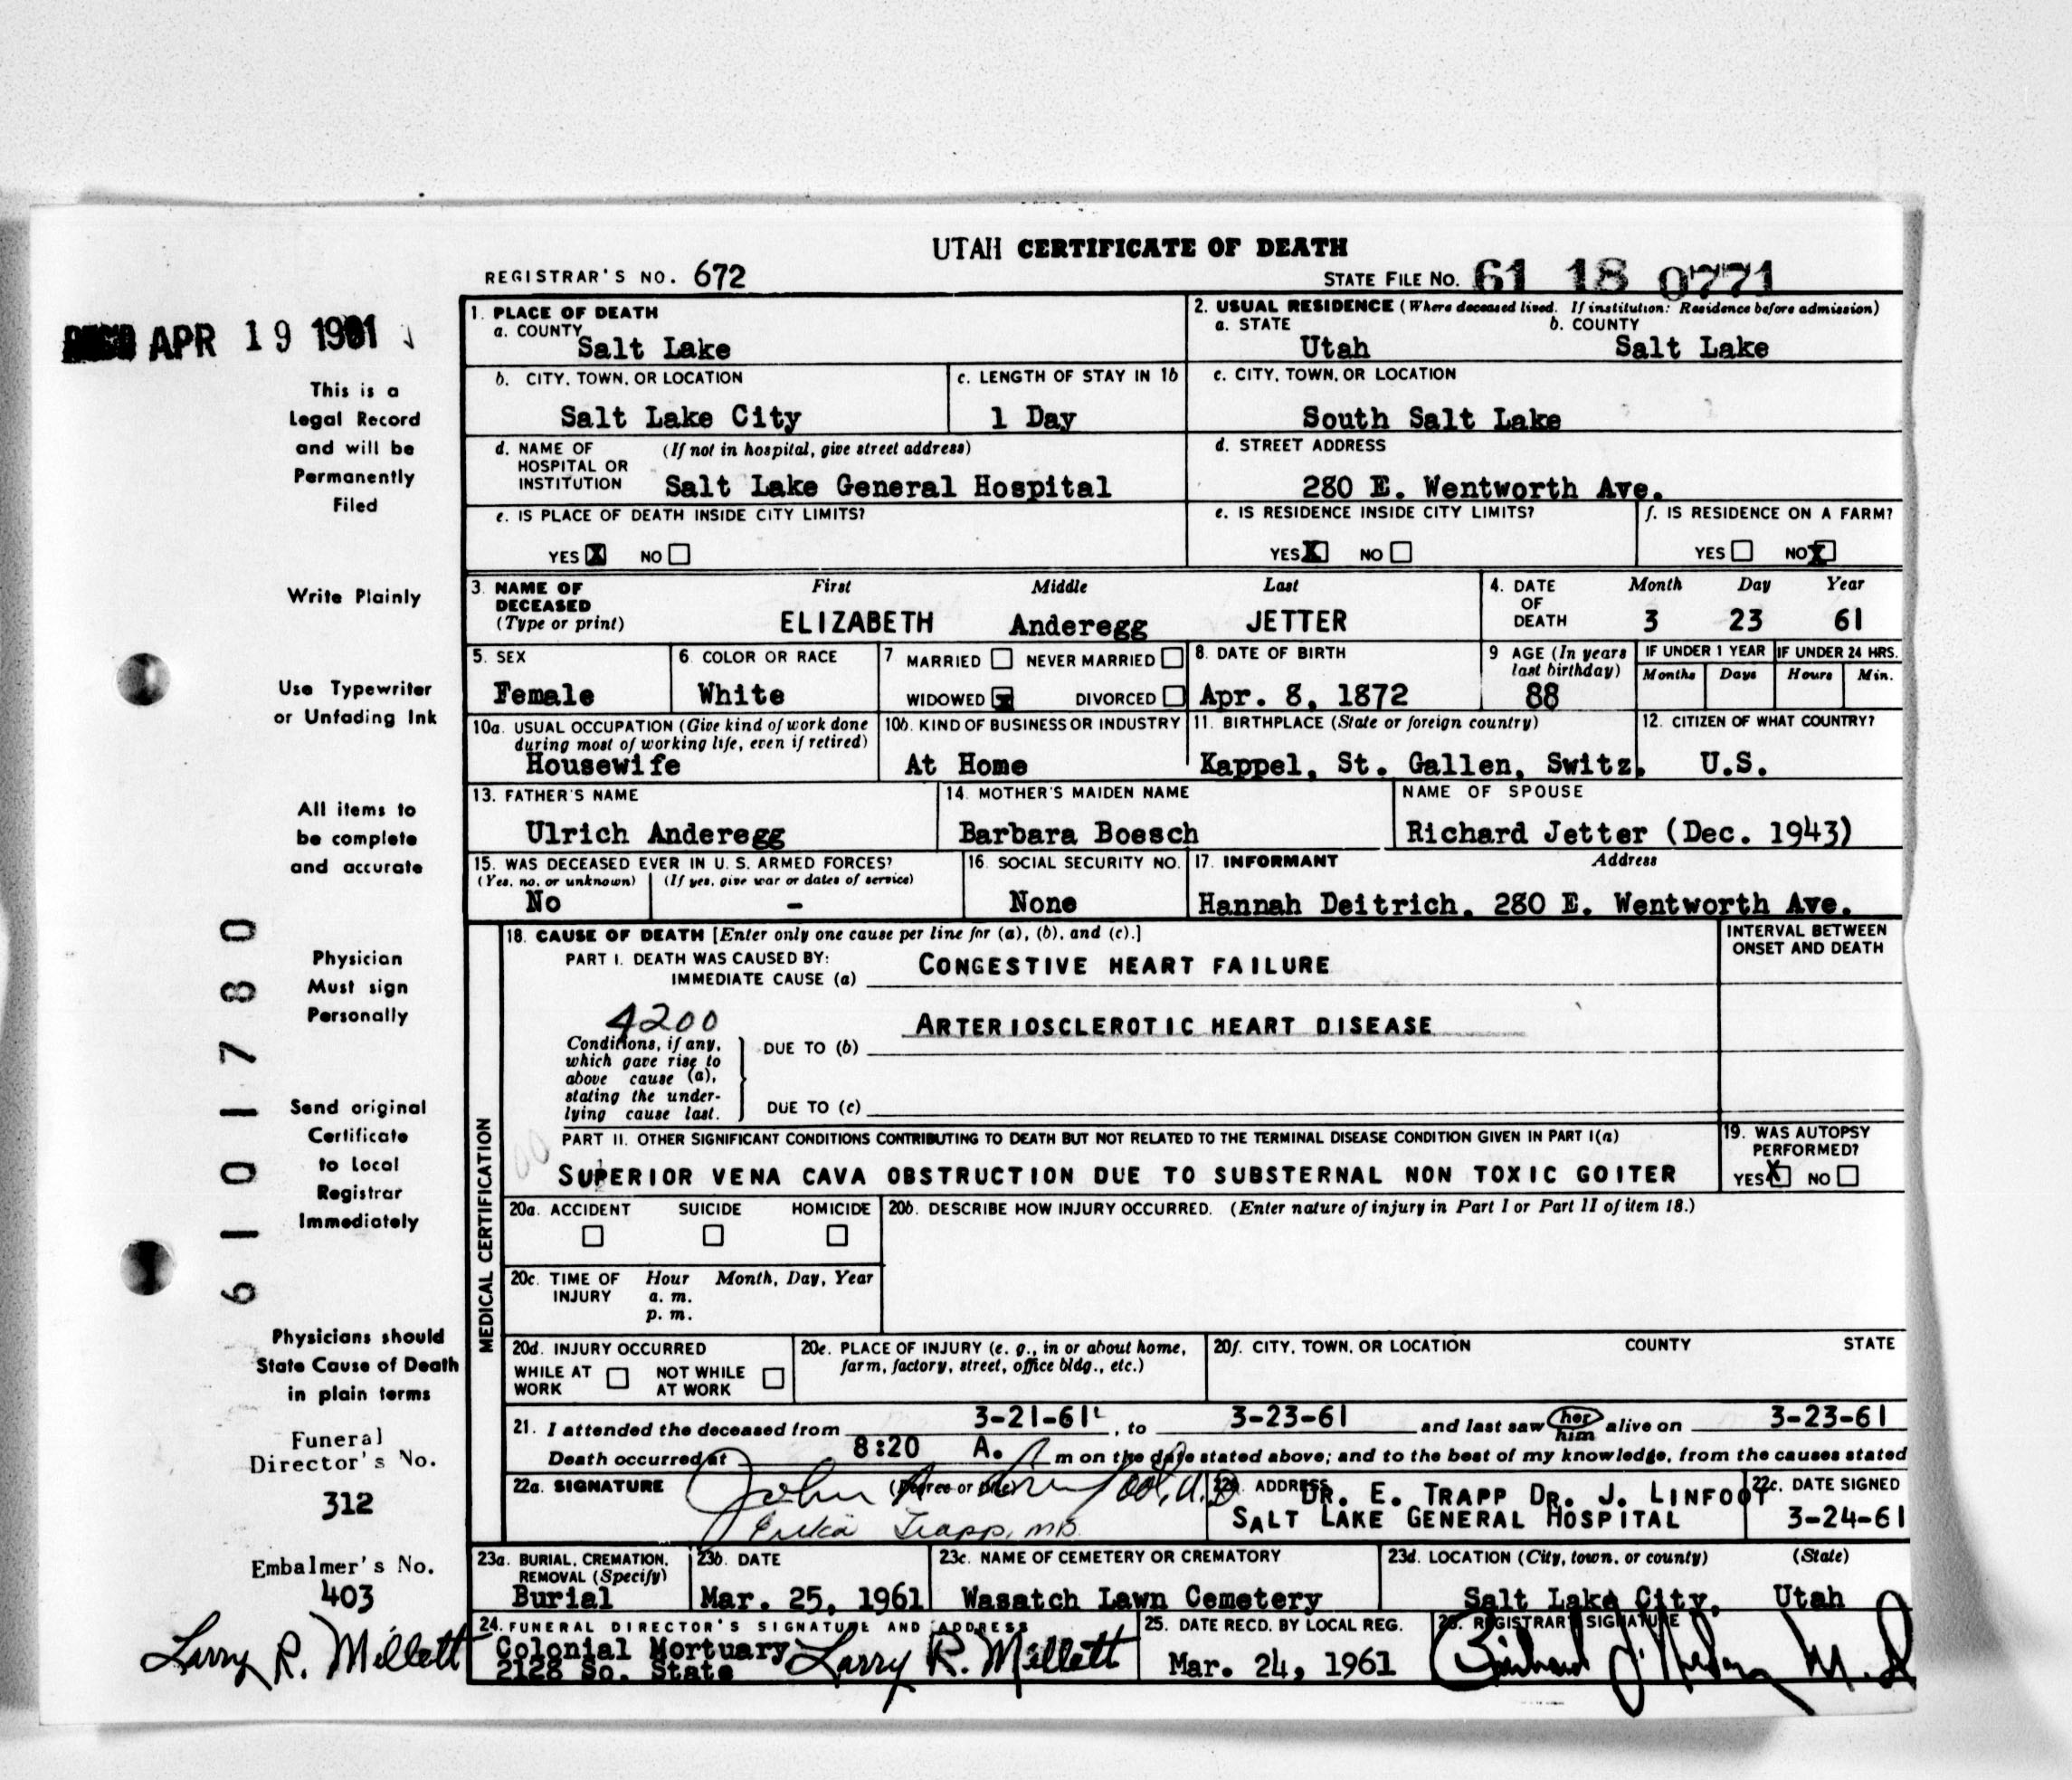 UTAH CERTIFICATE OF DEATH
REGISTRAR'S NO. 672
STATE FILE NO. 61 18 0771
APR 19 1961
This is a
Legal Record
and will be
Permanently
Filed
Write Plainly
Use Typewriter
or Unfading Ink
All items to
be complete
and accurate
Physician
Must sign
Personally
Send original
Certificate
to Local
Registrar
Immediately
Physicians should
State Cause of Death
in plain terms
Funeral
Director's No.
312
Embalmer's No.
403
Larry R. Millett
6101780
1. PLACE OF DEATH
a. COUNTY
Salt Lake
2. USUAL RESIDENCE (Where deceased lived. If institution: Residence before admission)
a. STATE b. COUNTY
Utah Salt Lake
b. CITY, TOWN, OR LOCATION
Salt Lake City
c. LENGTH OF STAY IN 1b
1 Day
c. CITY, TOWN, OR LOCATION
South Salt Lake
d. NAME OF (If not in hospital, give street address)
HOSPITAL OR
INSTITUTION Salt Lake General Hospital
d. STREET ADDRESS
280 E. Wentworth Ave.
e. IS PLACE OF DEATH INSIDE CITY LIMITS?
YES X NO
e. IS RESIDENCE INSIDE CITY LIMITS?
YES X NO
f. IS RESIDENCE ON A FARM?
YES NO X
3. NAME OF First Middle Last
DECEASED
(Type or print) ELIZABETH Anderegg JETTER
4. DATE Month Day Year
OF
DEATH 3 23 61
5. SEX
Female
6. COLOR OR RACE
White
7 MARRIED NEVER MARRIED
WIDOWED X DIVORCED
8. DATE OF BIRTH
Apr. 8, 1872
9 AGE (In years
last birthday)
88
IF UNDER 1 YEAR IF UNDER 24 HRS.
Months Days Hours Min.
10a. USUAL OCCUPATION (Give kind of work done
during most of working life, even if retired)
Housewife
10b. KIND OF BUSINESS OR INDUSTRY
At Home
11. BIRTHPLACE (State or foreign country)
Kappel, St. Gallen, Switz.
12. CITIZEN OF WHAT COUNTRY?
U.S.
13. FATHER'S NAME
Ulrich Anderegg
14. MOTHER'S MAIDEN NAME
Barbara Boesch
NAME OF SPOUSE
Richard Jetter (Dec. 1943)
15. WAS DECEASED EVER IN U. S. ARMED FORCES?
(Yes, no, or unknown) (If yes, give war or dates of service)
No -
16. SOCIAL SECURITY NO.
None
17. INFORMANT Address
Hannah Deitrich, 280 E. Wentworth Ave.
MEDICAL CERTIFICATION
18. CAUSE OF DEATH [Enter only one cause per line for (a), (b), and (c).]
INTERVAL BETWEEN
ONSET AND DEATH
PART I. DEATH WAS CAUSED BY:
IMMEDIATE CAUSE (a) CONGESTIVE HEART FAILURE
4200
Conditions, if any,
which gave rise to
above cause (a),
stating the under-
lying cause last.
DUE TO (b) ARTERIOSCLEROTIC HEART DISEASE
DUE TO (c)
PART II. OTHER SIGNIFICANT CONDITIONS CONTRIBUTING TO DEATH BUT NOT RELATED TO THE TERMINAL DISEASE CONDITION GIVEN IN PART I(a)
SUPERIOR VENA CAVA OBSTRUCTION DUE TO SUBSTERNAL NON TOXIC GOITER
19. WAS AUTOPSY
PERFORMED?
YES X NO
20a. ACCIDENT SUICIDE HOMICIDE
20b. DESCRIBE HOW INJURY OCCURRED. (Enter nature of injury in Part I or Part II of item 18.)
20c. TIME OF Hour Month, Day, Year
INJURY a. m.
p. m.
20d. INJURY OCCURRED
WHILE AT NOT WHILE
WORK AT WORK
20e. PLACE OF INJURY (e. g., in or about home,
farm, factory, street, office bldg., etc.)
20f. CITY, TOWN, OR LOCATION COUNTY STATE
21. I attended the deceased from 3-21-61, to 3-23-61 and last saw her him alive on 3-23-61
Death occurred at 8:20 A. m on the date stated above; and to the best of my knowledge, from the causes stated
22a. SIGNATURE (Degree or title)
John Linfoot, M.D
Erika Trapp, M.D.
22b. ADDRESS DR. E. TRAPP DR. J. LINFOOT
SALT LAKE GENERAL HOSPITAL
22c. DATE SIGNED
3-24-61
23a. BURIAL, CREMATION,
REMOVAL (Specify)
Burial
23b. DATE
Mar. 25, 1961
23c. NAME OF CEMETERY OR CREMATORY
Wasatch Lawn Cemetery
23d. LOCATION (City, town, or county) (State)
Salt Lake City, Utah
24. FUNERAL DIRECTOR'S SIGNATURE AND ADDRESS
Colonial Mortuary Larry R. Millett
2128 So. State
25. DATE RECD. BY LOCAL REG.
Mar. 24, 1961
26. REGISTRAR'S SIGNATURE
M.D